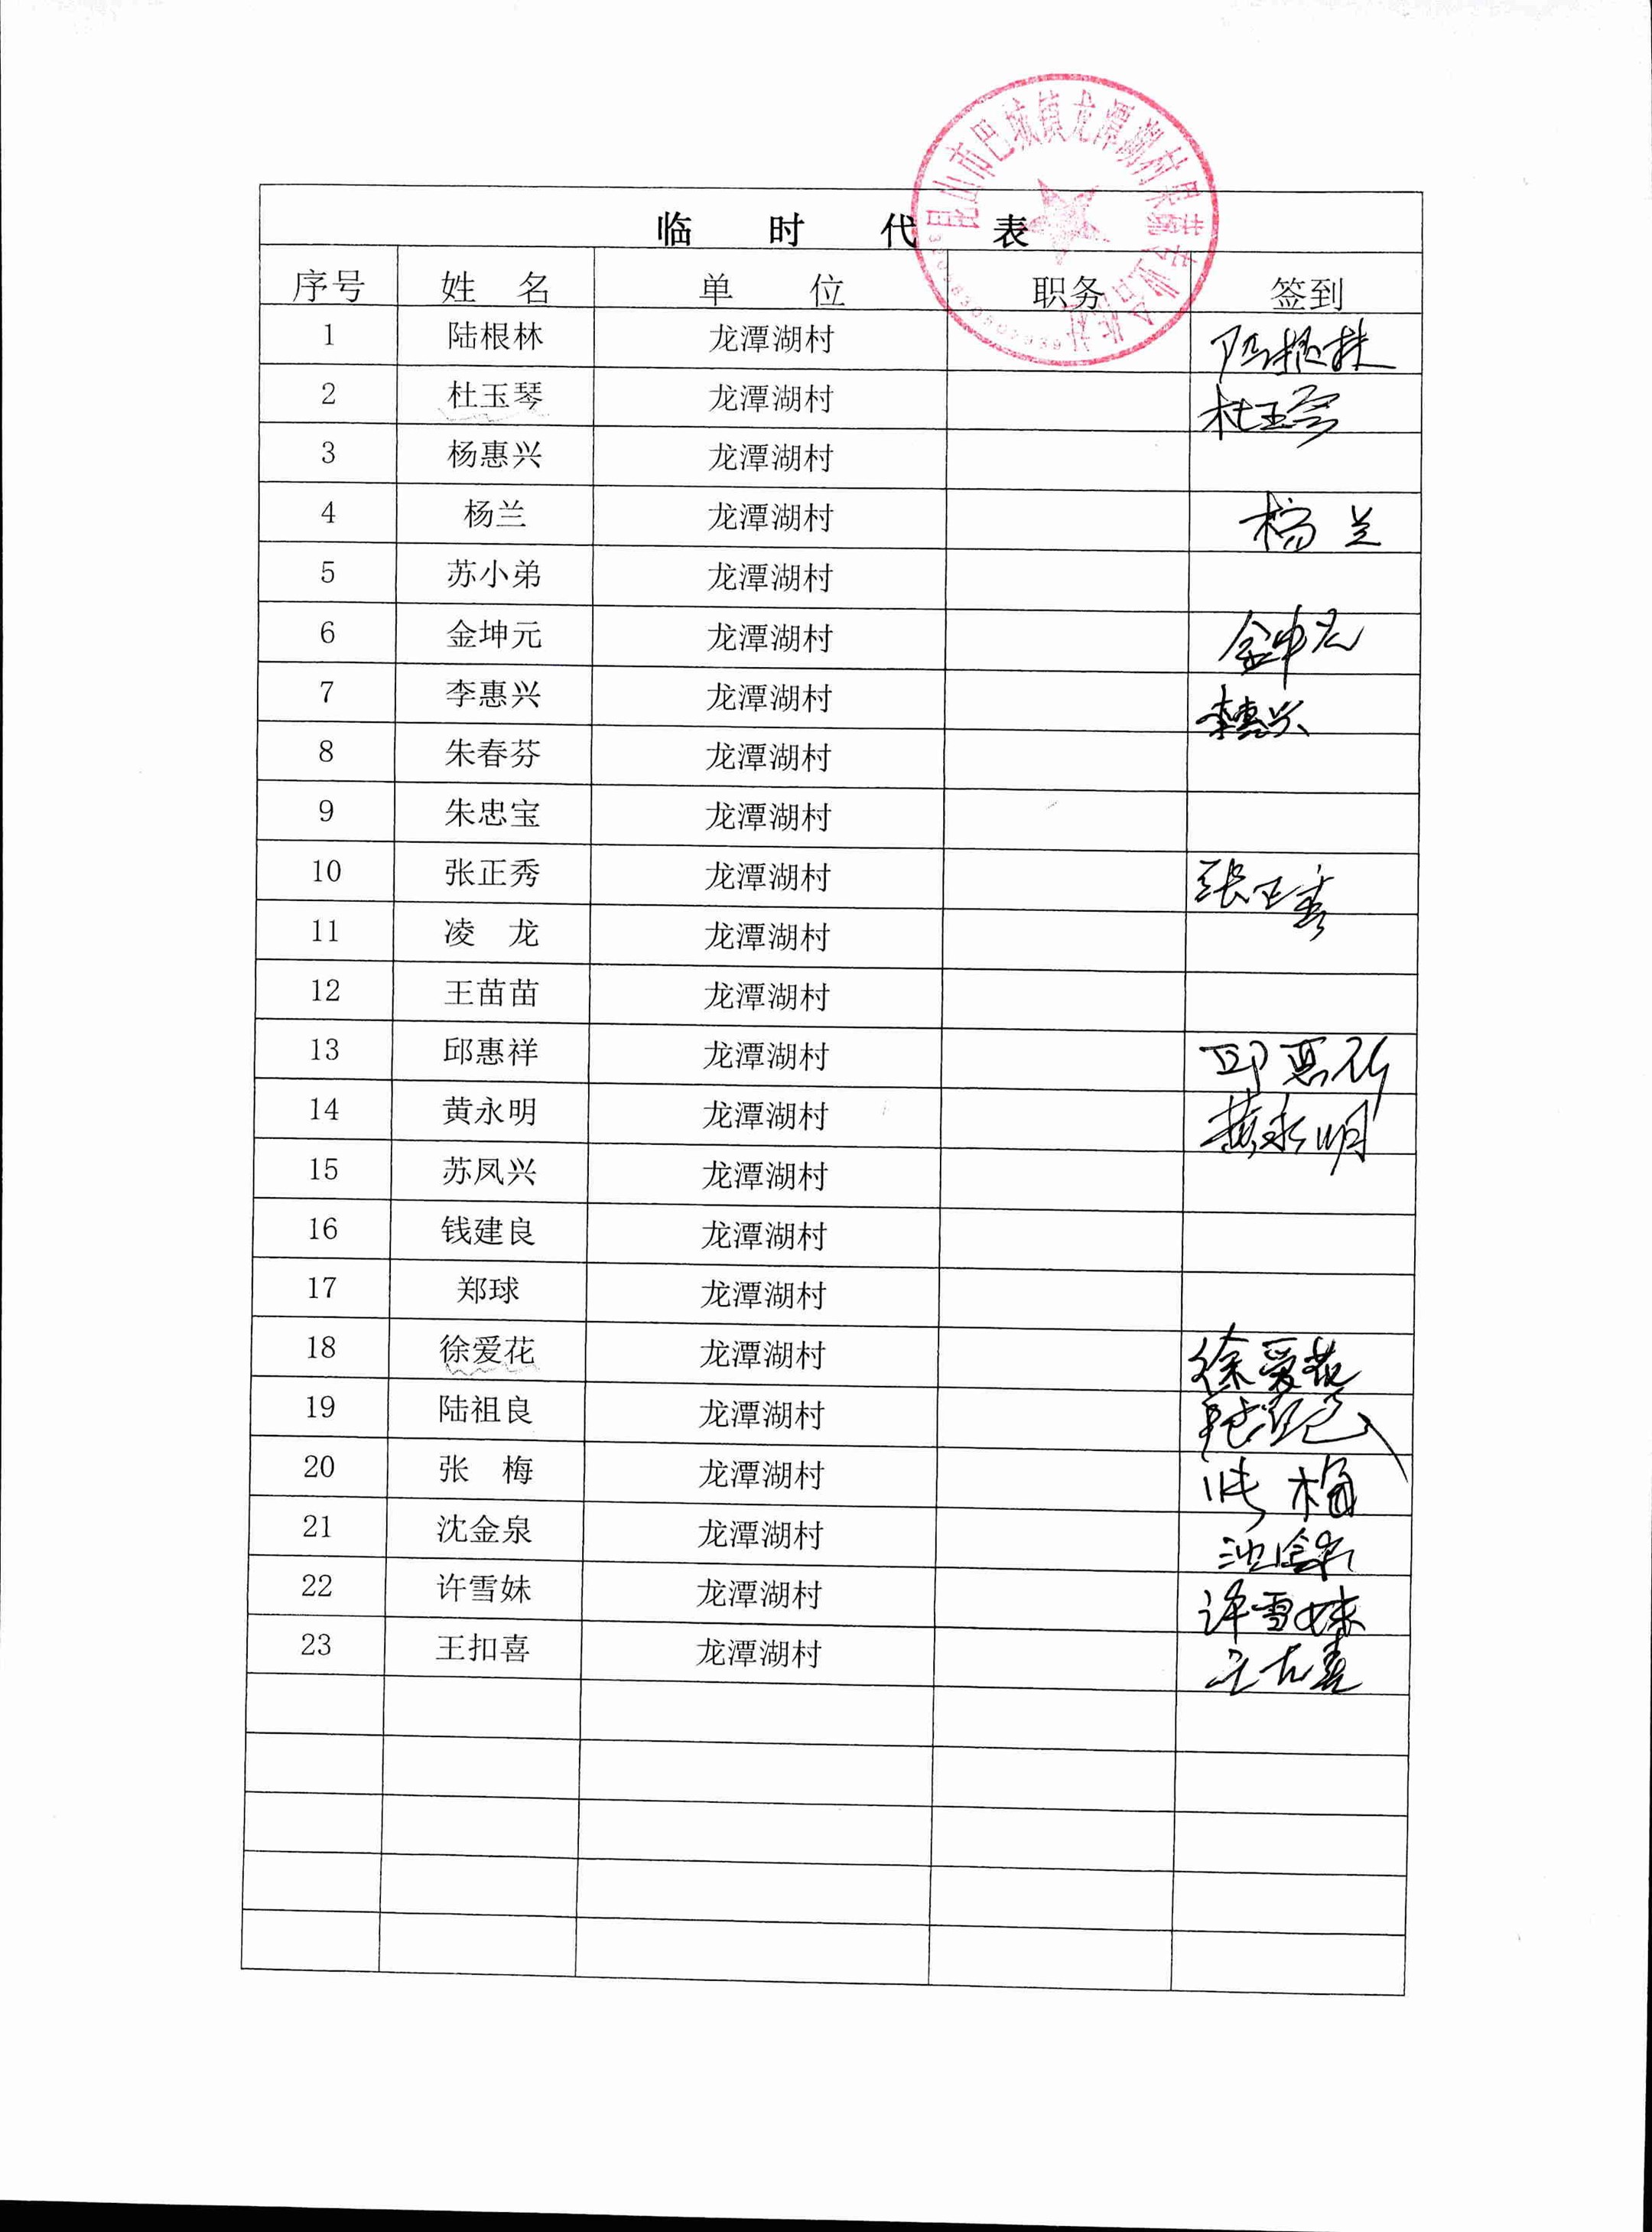 昆山市巴城镇龙潭湖村果蔬专业合作社
临时代表
序号 姓名 单位 职务 签到
1 陆根林 龙潭湖村 陆根林
2 杜玉琴 龙潭湖村 杜玉琴
3 杨惠兴 龙潭湖村
4 杨兰 龙潭湖村 杨兰
5 苏小弟 龙潭湖村
6 金坤元 龙潭湖村 金坤元
7 李惠兴 龙潭湖村 李惠兴
8 朱春芬 龙潭湖村
9 朱忠宝 龙潭湖村
10 张正秀 龙潭湖村 张正秀
11 凌龙 龙潭湖村
12 王苗苗 龙潭湖村
13 邱惠祥 龙潭湖村 邱惠祥
14 黄永明 龙潭湖村 黄永明
15 苏凤兴 龙潭湖村
16 钱建良 龙潭湖村
17 郑球 龙潭湖村
18 徐爱花 龙潭湖村 徐爱花
19 陆祖良 龙潭湖村
20 张梅 龙潭湖村 张梅
21 沈金泉 龙潭湖村 沈金泉
22 许雪妹 龙潭湖村 许雪妹
23 王扣喜 龙潭湖村 王扣喜